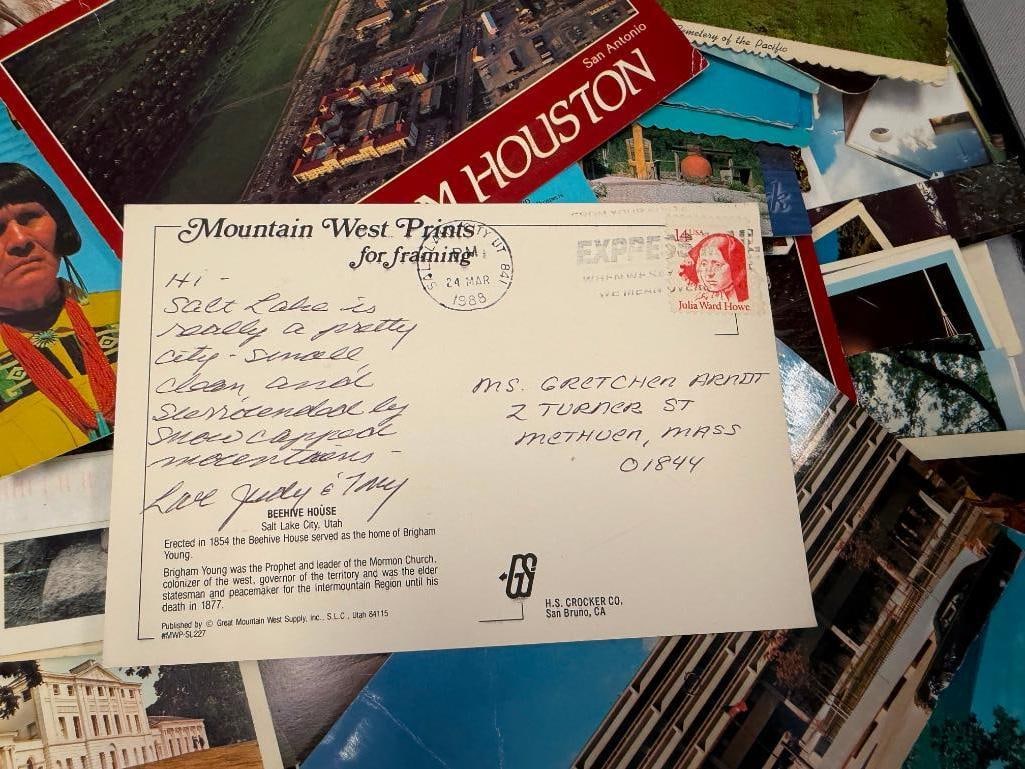 San Antonio
M HOUSTON
Cemetery of the Pacific
Mountain West Prints
for framing
SALT LAKE CITY UT 841
PM
24 MAR
1988
EXPRESS MAIL
WHEN WE SAY
WE MEAN OVER
14 USA
Julia Ward Howe
Hi -
Salt Lake is
really a pretty
city - small
clean, and
surrounded by
snow capped
mountains -
Love Judy & Tony
MS. GRETCHEN ARNDT
2 TURNER ST
METHUEN, MASS
01844
BEEHIVE HOUSE
Salt Lake City, Utah
Erected in 1854 the Beehive House served as the home of Brigham
Young.
Brigham Young was the Prophet and leader of the Mormon Church,
colonizer of the west, governor of the territory and was the elder
statesman and peacemaker for the intermountain Region until his
death in 1877.
Published by © Great Mountain West Supply, Inc., S.L.C., Utah 84115
#MWP-SL227
GS
H.S. CROCKER CO.
San Bruno, CA